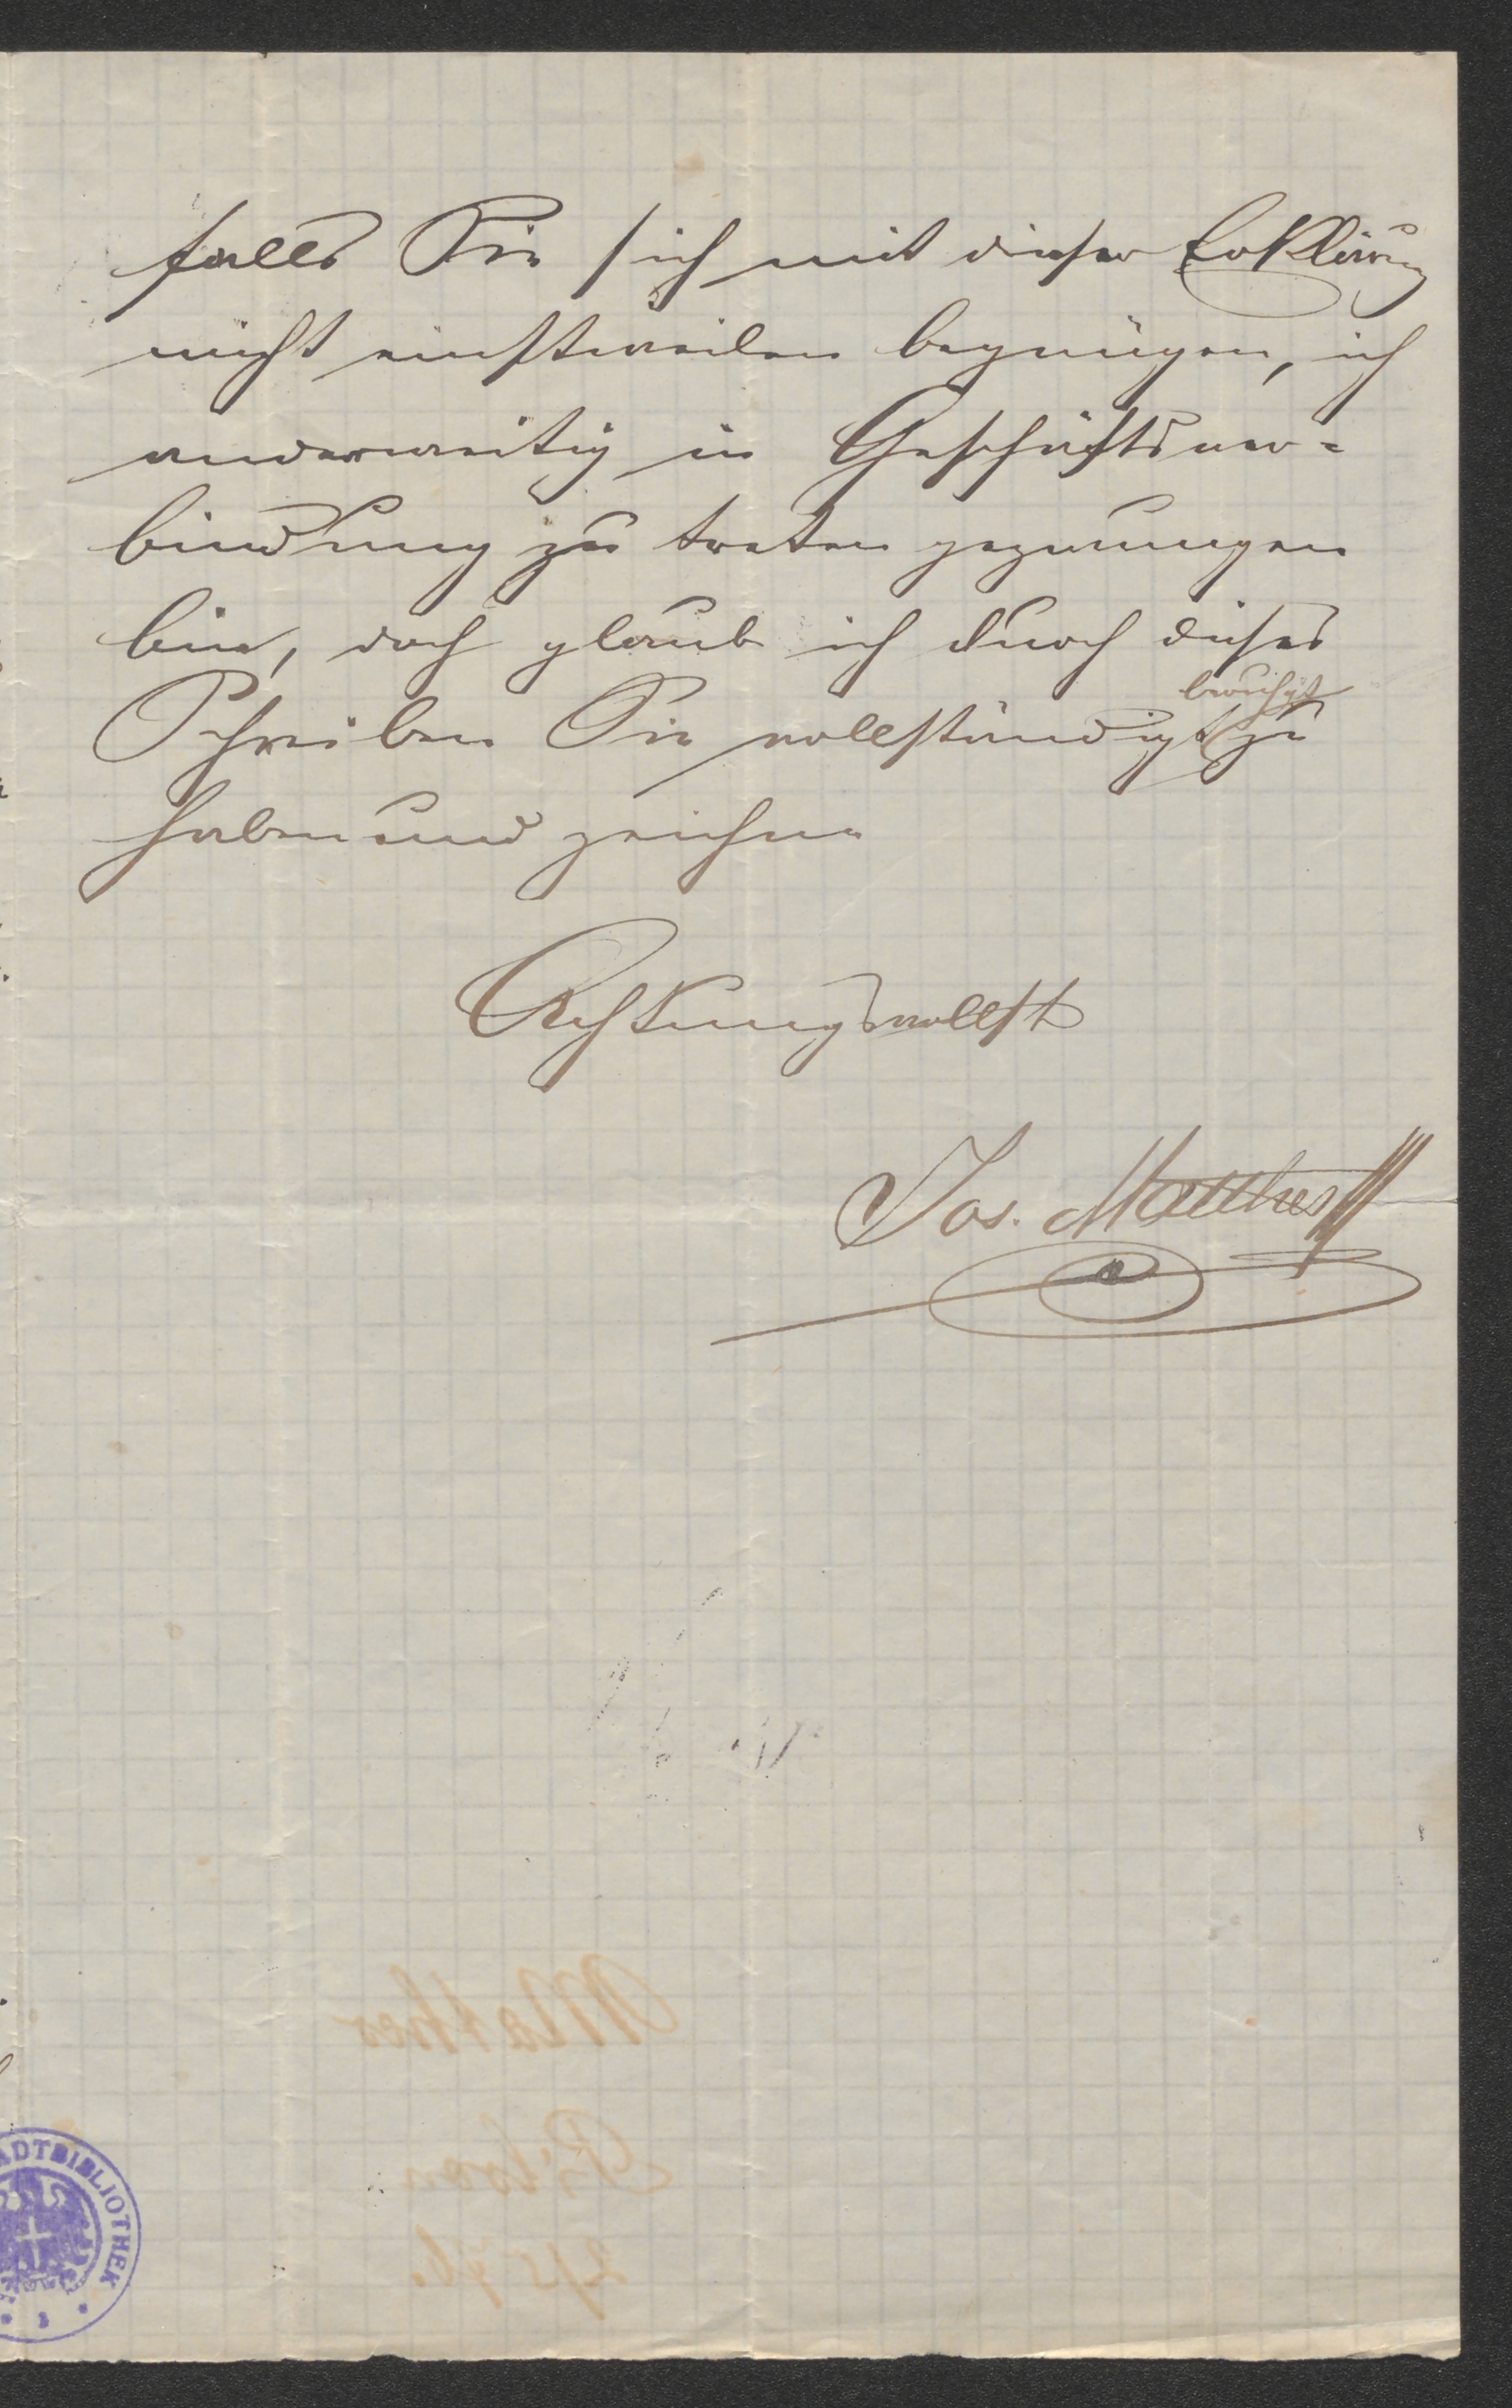 falls Sie sich mit dieser Erklärung
nicht einstweilen begnügen, ich
anderweitig in Geschäftsver=
bindung zu treten gezwungen
bin, doch glaub ich durch dieses
beruhigt
Schreiben Sie vollständigst zu
haben und zeichne
Achtungsvollst
Jos. Matthes
ADTBIBLIOTHEK